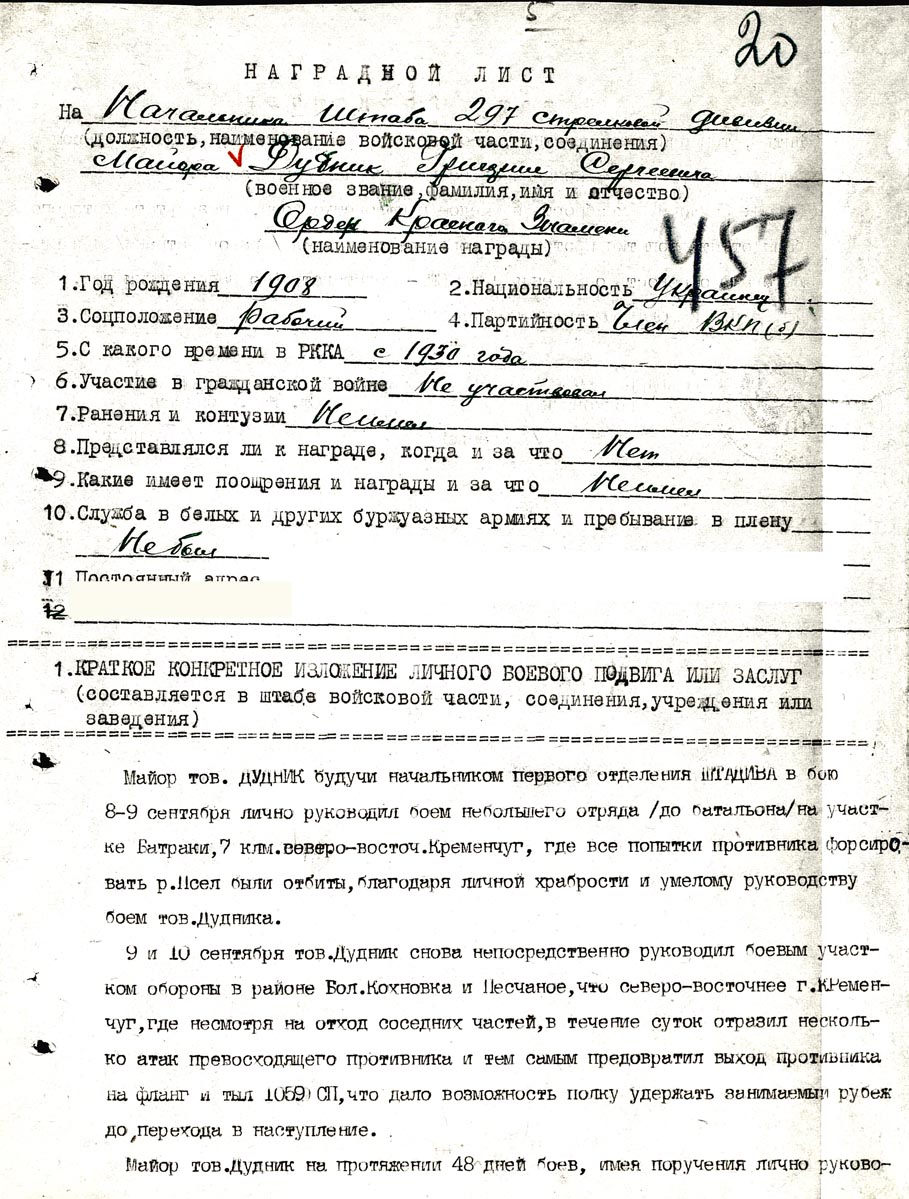 5
20
НАГРАДНОЙ ЛИСТ
На Начальника Штаба 297 стрелковой дивизии
(должность,наименование войсковой части,соединения)
Майора Дудник Григория Сергеевича
(военное звание,фамилия,имя и отчество)
Орден Красного Знамени
(наименование награды)
457
1.Год рождения 1908 2.Национальность Украинец
3.Соцположение рабочий 4.Партийность Член ВКП(б)
5.С какого времени в РККА с 1930 года
6.Участие в гражданской войне Не участвовал
7.Ранения и контузии Неимел
8.Представлялся ли к награде, когда и за что Нет
9.Какие имеет поощрения и награды и за что Неимел
10.Служба в белых и других буржуазных армиях и пребывание в плену
Не был
11 Постоянный адрес
12
1.КРАТКОЕ КОНКРЕТНОЕ ИЗЛОЖЕНИЕ ЛИЧНОГО БОЕВОГО ПОДВИГА ИЛИ ЗАСЛУГ
(составляется в штабе войсковой части, соединения,учреждения или
заведения)
Майор тов. ДУДНИК будучи начальником первого отделения ШТАДИВА в бою
8-9 сентября лично руководил боем небольшего отряда /до батальона/на участ-
ке Батраки,7 клм.северо-восточ.Кременчуг, где все попытки противника форсиро-
вать р.Псел были отбиты,благодаря личной храбрости и умелому руководству
боем тов.Дудника.
9 и 10 сентября тов.Дудник снова непосредственно руководил боевым участ-
ком обороны в районе Бол.Кохновка и Песчаное,что северо-восточнее г.КРемен-
чуг,где несмотря на отход соседних частей,в течение суток отразил несколь-
ко атак превосходящего противника и тем самым предовратил выход противника
на фланг и тыл 1059 СП,что дало возможность полку удержать занимаемый рубеж
до перехода в наступление.
Майор тов.Дудник на протяжении 48 дней боев, имея поручения лично руково-